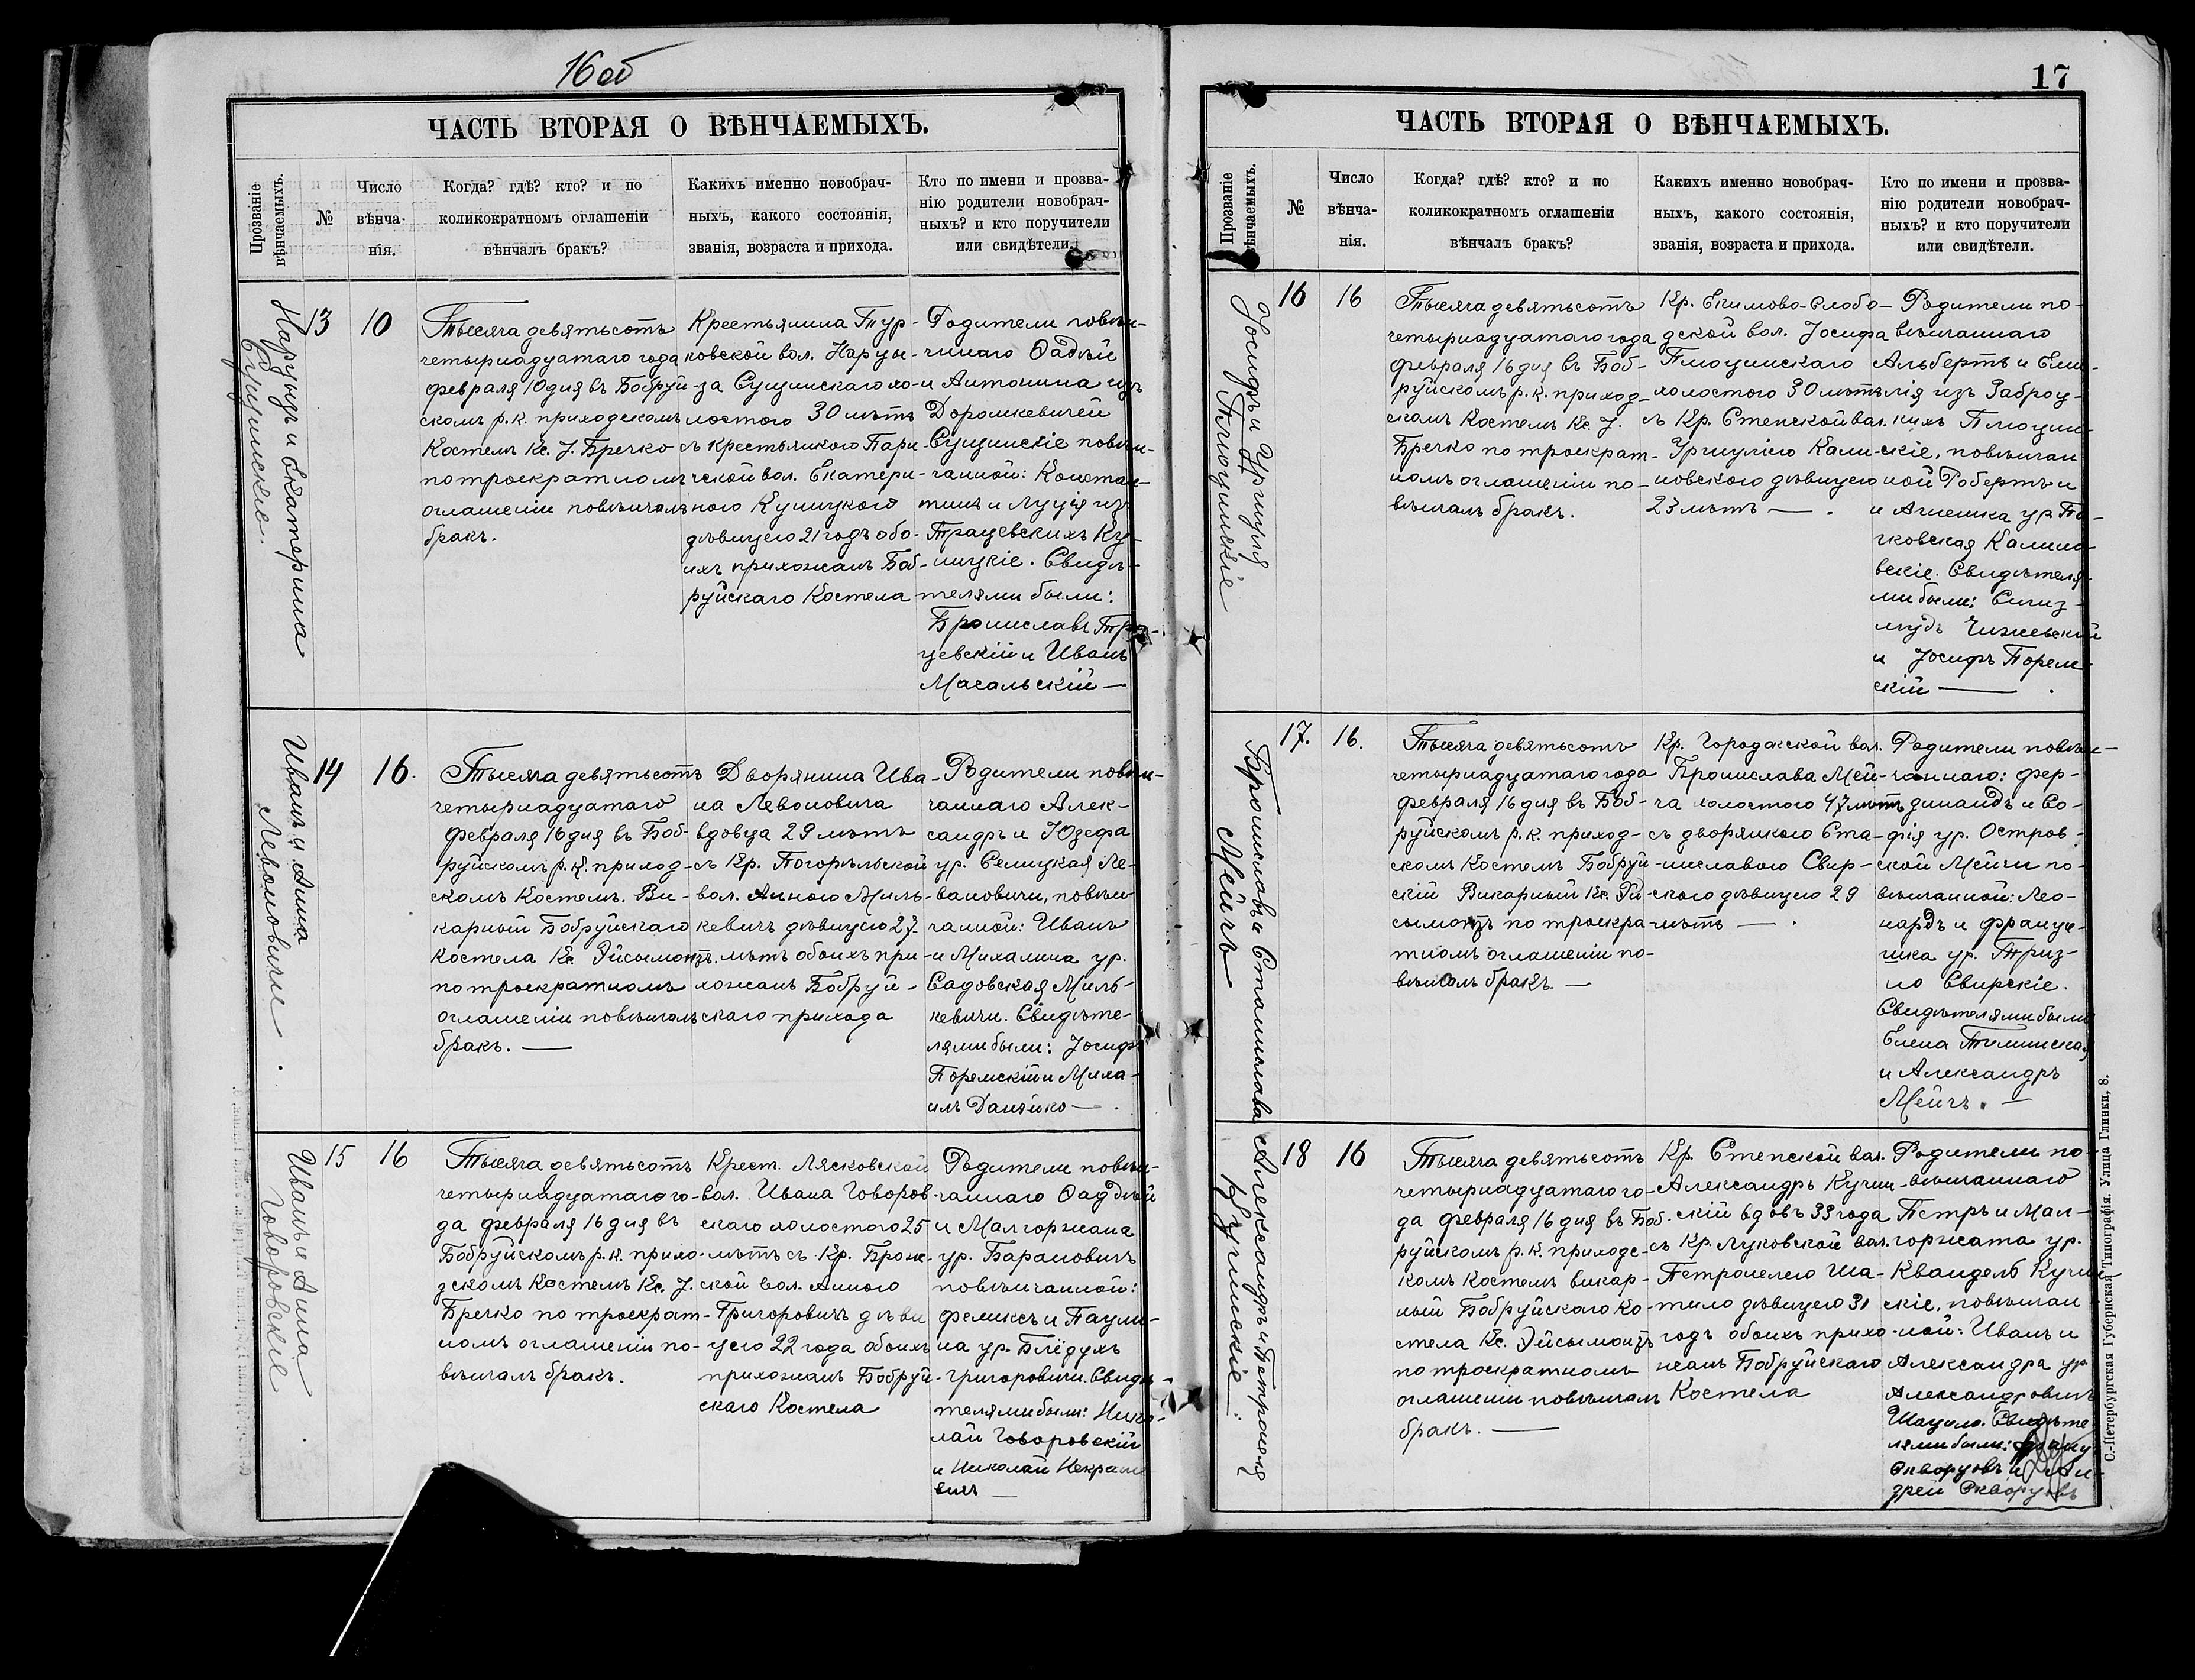 16 об
ЧАСТЬ ВТОРАЯ О ВѢНЧАЕМЫХЪ.
Прозваніе
вѣнчаемыхъ.
№
Число
вѣнча-
нія.
Когда? гдѣ? кто? и по
коликократномъ оглашеніи
вѣнчалъ бракъ?
Какихъ именно новобрач-
ныхъ, какого состоянія,
званія, возраста и прихода.
Кто по имени и прозва-
нію родители новобрач-
ныхъ? и кто поручители
или свидѣтели.
Нарцызъ и Екатерина
Сущинскіе.
13
10
Тысяча девятьсотъ
четырнадцатаго года
февраля 10 дня въ Бобруй-
скомъ р. к. приходскомъ
Костелѣ Кс. J. Бречко
по троекратномъ
оглашеніи повѣнчалъ
бракъ.
Крестьянина Тур-
ковской вол. Нарцы-
за Сущинскаго хо-
лостого 30 лѣтъ
съ крестьянкою Пари-
ческой вол. Екатери-
ною Куницкою
дѣвицею 21 годъ обо-
ихъ прихожанъ Боб-
руйскаго Костела
Родители повѣн-
чаннаго Ѳадѣй
и Антонина изъ
Дорошкевичей
Сущинскіе повѣн-
чанной: Констан-
тинъ и Луція изъ
Трацевскихъ Ку-
ницкіе. Свидѣ-
телями были:
Брониславъ Тра-
цевскій и Иванъ
Масальскій —
Иванъ и Анна
Левоновичи.
14
16.
Тысяча девятьсотъ
четырнадцатаго
февраля 16 дня въ Боб-
руйскомъ р. к. приход-
скомъ Костелѣ. Ви-
карный Бобруйскаго
костела Кс. Эйсымонтъ.
по троекратномъ
оглашеніи повѣнчалъ
бракъ. —
Дворянина Ива-
на Левоновича
вдовца 29 лѣтъ
съ Кр. Погорѣльской
вол. Анною Миль-
кевичъ дѣвицею 27
лѣтъ обоихъ при-
хожанъ Бобруй-
скаго прихода
Родители повѣн-
чаннаго Алек-
сандръ и Юзефа
ур. Селицкая Ле-
вановичи, повѣн-
чанной: Иванъ
и Михалина ур.
Садовская Миль-
кевичи. Свидѣте-
лями были: Jосифъ
Поремскій и Миха-
илъ Данейко — .
Иванъ и Анна
Говоровскіе
15
16
Тысяча девятьсотъ
четырнадцатаго го-
да февраля 16 дня въ
Бобруйскомъ р. к. прихо-
дскомъ Костелѣ Кс. J.
Бречко по троекрат-
номъ оглашеніи по-
вѣнчалъ бракъ.
Крест. Лясковской
вол. Ивана Говоров-
скаго холостого 25
лѣтъ съ Кр. Брож-
ской вол. Анною
Григоровичъ дѣви
цею 22 года обоихъ
прихожанъ Бобруй
скаго Костела
Родители повѣн-
чаннаго Ѳаддѣй
и Малгоржана
ур. Барановичъ
повѣнчанной:
Феликсъ и Паули-
на ур. Блёдухъ
Григоровичи. Свидѣ-
телями были: Нико-
лай Говоровскій
и Николай Некраше
вичъ —
17
ЧАСТЬ ВТОРАЯ О ВѢНЧАЕМЫХЪ.
Прозваніе
вѣнчаемыхъ.
№
Число
вѣнча-
нія.
Когда? гдѣ? кто? и по
коликократномъ оглашеніи
вѣнчалъ бракъ?
Какихъ именно новобрач-
ныхъ, какого состоянія,
званія, возраста и прихода.
Кто по имени и прозва-
нію родители новобрач-
ныхъ? и кто поручители
или свидѣтели.
Jосифъ и Уршуля
Плюцинскіе
16
16
Тысяча девятьсотъ
четырнадцатаго года
февраля 16 дня въ Боб-
руйскомъ р. к. приход-
скомъ Костелѣ Кс. J.
Бречко по троекрат-
номъ оглашеніи по-
вѣнчалъ бракъ.
Кр. Екимово-Слобо-
дской вол. Jосифа
Плюцинскаго
холостого 30 лѣтъ
съ Кр. Степской вол.
Уршулею Кали-
новскою дѣвицею
23 лѣтъ — .
Родители по-
вѣнчаннаго
Альбертъ и Еми-
лія изъ Заброц-
кихъ Плюцин-
скіе, повѣнчан
ной Робертъ и
и Агнешка ур. По-
чковская Калино-
вскіе. Свидѣтеля-
ми были: Сигиз-
мудъ Чижевскій
и Jосифъ Порем-
скій — .
Брониславъ и Станислава
Мейчъ
17.
16.
Тысяча девятьсотъ
четырнадцатаго года
февраля 16 дня въ Боб-
руйскомъ р. к. приход-
скомъ Костелѣ Бобруй-
скій Викарный Кс. Эй-
сымонтъ по троекра-
тномъ оглашеніи по-
вѣнчалъ бракъ —
Кр. Городокской вол.
Бронислава Мей-
ча холостого 47 лѣтъ
съ дворянкою Ста-
ниславою Свир-
скою дѣвицею 29
лѣтъ — .
Родители повѣн-
чаннаго: Фер-
динандъ и Со-
фія ур. Остров-
ской Мейчи по-
вѣнчанной: Лео-
нардъ и Францi-
шка ур. Триз-
но Свирскіе.
Свидѣтелями были
Елена Тиминская
и Александръ
Мейчъ. —
Александръ и Петронеля
Кучинскіе.
18
16
Тысяча девятьсотъ
четырнадцатаго го-
да февраля 16 дня въ Боб-
руйскомъ р. к. приходс-
комъ Костелѣ викар-
ный Бобруйскаго Ко-
стела Кс. Эйсымонтъ
по троекратномъ
оглашеніи повѣнчалъ
бракъ. —
Кр. Степской вол.
Александръ Кучин-
скій вдовъ 39 года
съ Кр. Луковской вол.
Петронелею Ша-
тило дѣвицею 31
годъ обоихъ прихо-
жанъ Бобруйскаго
Костела
Родители по-
вѣнчаннаго
Петръ и Мал-
горжата ур.
Квандель Кучин-
скіе, повѣнчан
ной: Иванъ и
Александра ур.
Александровичъ
Шацило. Свидѣте
лями были:
Скворцовъ и Ан-
дрей Скворцовъ
С.-Петербургская Губернская Типографія. Улица Глинки, 8.